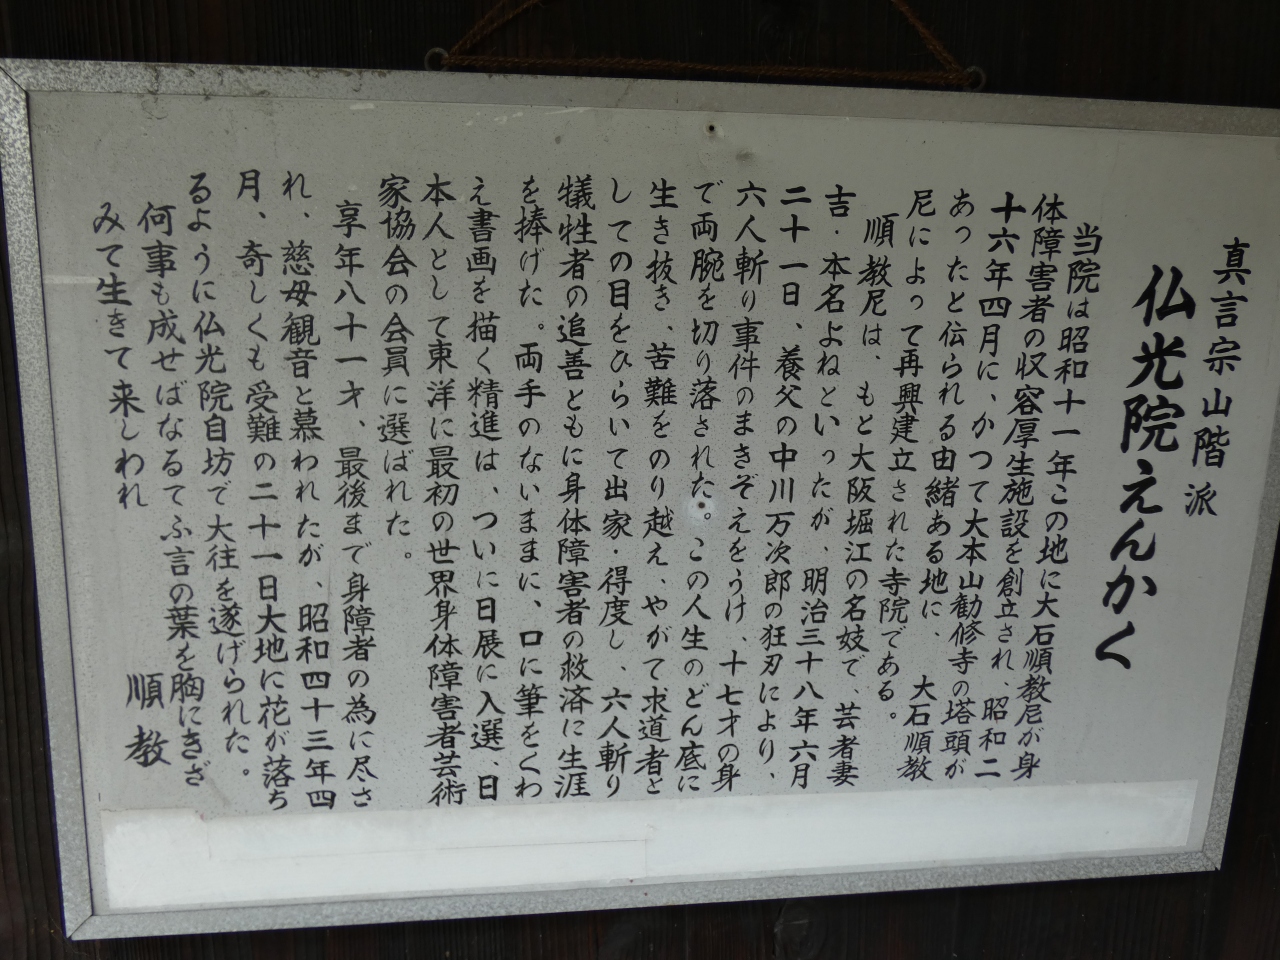 真言宗山階派
仏光院えんかく
当院は昭和十一年この地に大石順教尼が身
体障害者の収容厚生施設を創立され、昭和二
十六年四月に、かつて大本山勧修寺の塔頭が
あったと伝られる由緒ある地に、大石順教
尼によって再興建立された寺院である。
順教尼は、もと大阪堀江の名妓で、芸者妻
吉・本名よねといったが、明治三十八年六月
二十一日、養父の中川万次郎の狂刃により、
六人斬り事件のまきぞえをうけ、十七才の身
で両腕を切り落された。この人生のどん底に
生き抜き、苦難をのり越え、やがて求道者と
しての目をひらいて出家・得度し、六人斬り
犠牲者の追善ともに身体障害者の救済に生涯
を捧げた。両手のないままに、口に筆をくわ
え書画を描く精進は、ついに日展に入選、日
本人として東洋に最初の世界身体障害者芸術
家協会の会員に選ばれた。
享年八十一才、最後まで身障者の為に尽さ
れ、慈母観音と慕われたが、昭和四十三年四
月、奇しくも受難の二十一日大地に花が落ち
るように仏光院自坊で大往を遂げられた。
何事も成せばなるてふ言の葉を胸にきざ
みて生きて来しわれ
順教